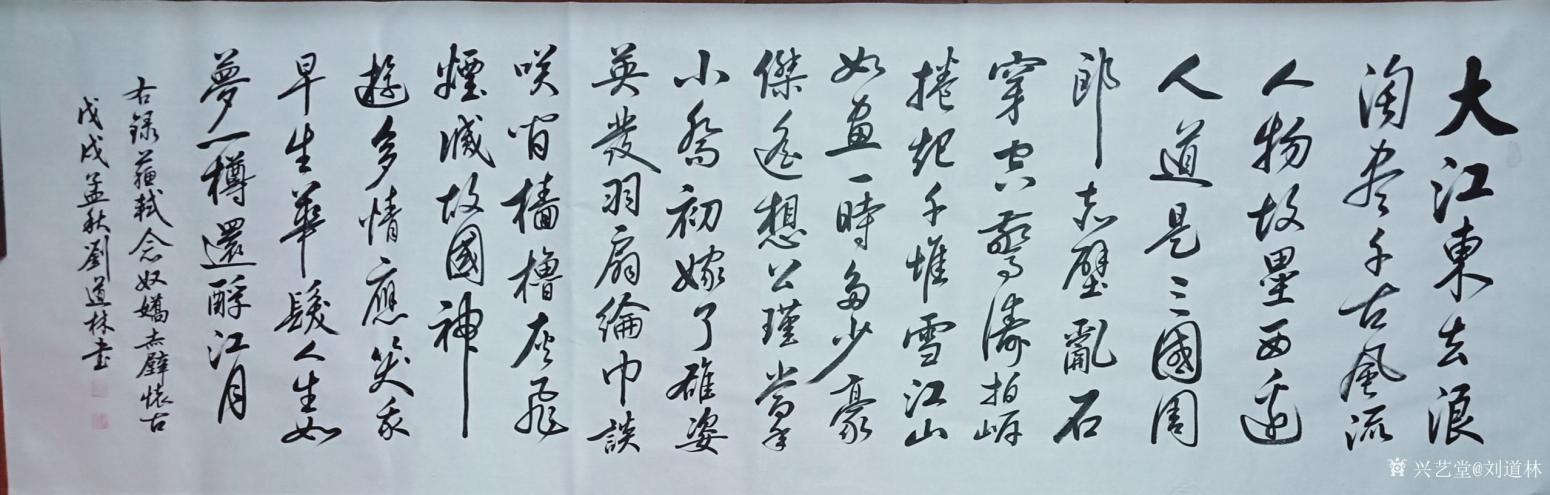 大江東去浪
淘尽千古風流
人物故壘西邊
人道是三國周
郎赤壁亂石
穿空驚濤拍岸
捲起千堆雪江山
如畫一時多少豪
傑遙想公瑾當年
小喬初嫁了雄姿
英發羽扇綸巾談
咲間檣櫓灰飛
煙滅故國神
遊多情應笑我
早生華髮人生如
夢一樽還酹江月
右録蘇軾念奴嬌赤壁懷古
戊戌孟秋劉道林書
兴艺堂@刘道林